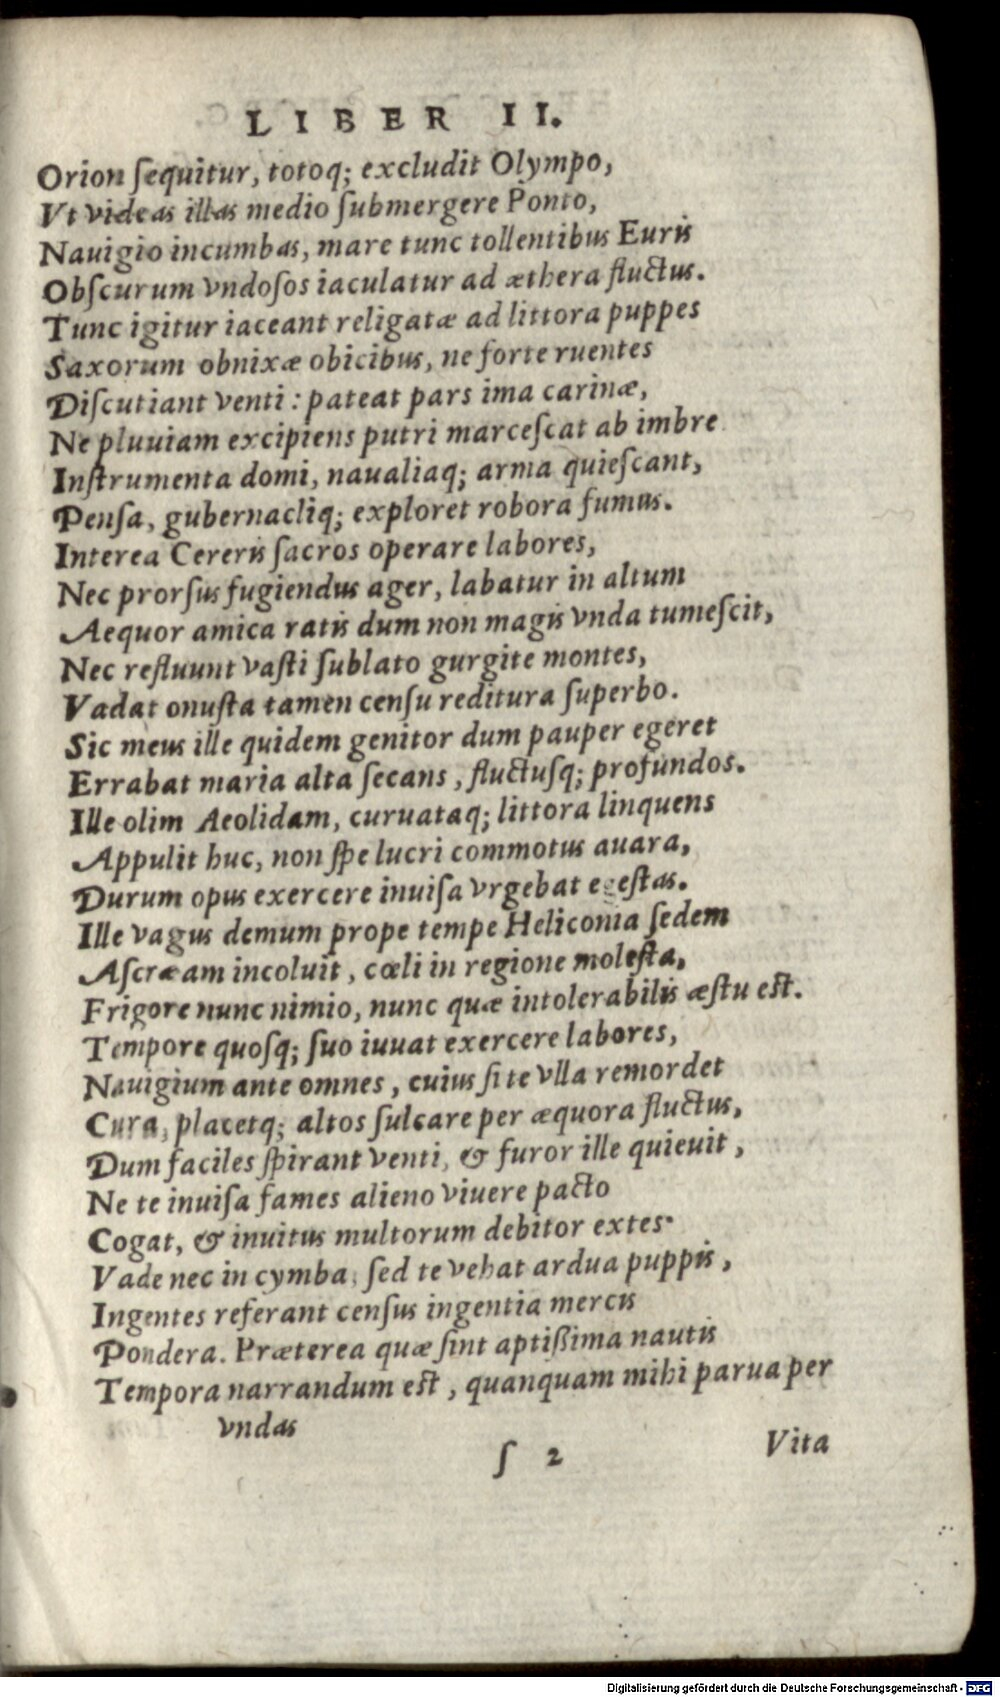 LIBER II.
Orion ſequitur, totoq; excludit Olympo,
Vt videas illas medio ſubmergere Ponto,
Nauigio incumbas, mare tunc tollentibus Euris
Obſcurum vndoſos iaculatur ad æthera fluctus.
Tunc igitur iaceant religatæ ad littora puppes
Saxorum obnixæ obicibus, ne forte ruentes
Diſcutiant venti: pateat pars ima carinæ,
Ne pluuiam excipiens putri marceſcat ab imbre
Inſtrumenta domi, naualiaq; arma quieſcant,
Penſa, gubernacliq; exploret robora fumus.
Interea Cereris ſacros operare labores,
Nec prorſus fugiendus ager, labatur in altum
Aequor amica ratis dum non magis vnda tumeſcit,
Nec refluunt vaſti ſublato gurgite montes,
Vadat onuſta tamen cenſu reditura ſuperbo.
Sic meus ille quidem genitor dum pauper egeret
Errabat maria alta ſecans, fluctuſq; profundos.
Ille olim Aeolidam, curuataq; littora linquens
Appulit huc, non ſpe lucri commotus auara,
Durum opus exercere inuiſa vrgebat egeſtas.
Ille vagus demum prope tempe Heliconia ſedem
Aſcræam incoluit, cœli in regione moleſta,
Frigore nunc nimio, nunc quæ intolerabilis æſtu eſt.
Tempore quoſq; ſuo iuuat exercere labores,
Nauigium ante omnes, cuius ſi te vlla remordet
Cura, placetq; altos ſulcare per æquora fluctus,
Dum faciles ſpirant venti, & furor ille quieuit,
Ne te inuiſa fames alieno viuere pacto
Cogat, & inuitus multorum debitor extes.
Vade nec in cymba, ſed te vehat ardua puppis,
Ingentes referant cenſus ingentia mercis
Pondera. Præterea quæ ſint aptißima nautis
Tempora narrandum eſt, quanquam mihi parua per
vndas
ſ 2 Vita
Digitalisierung gefördert durch die Deutsche Forschungsgemeinschaft - DFG